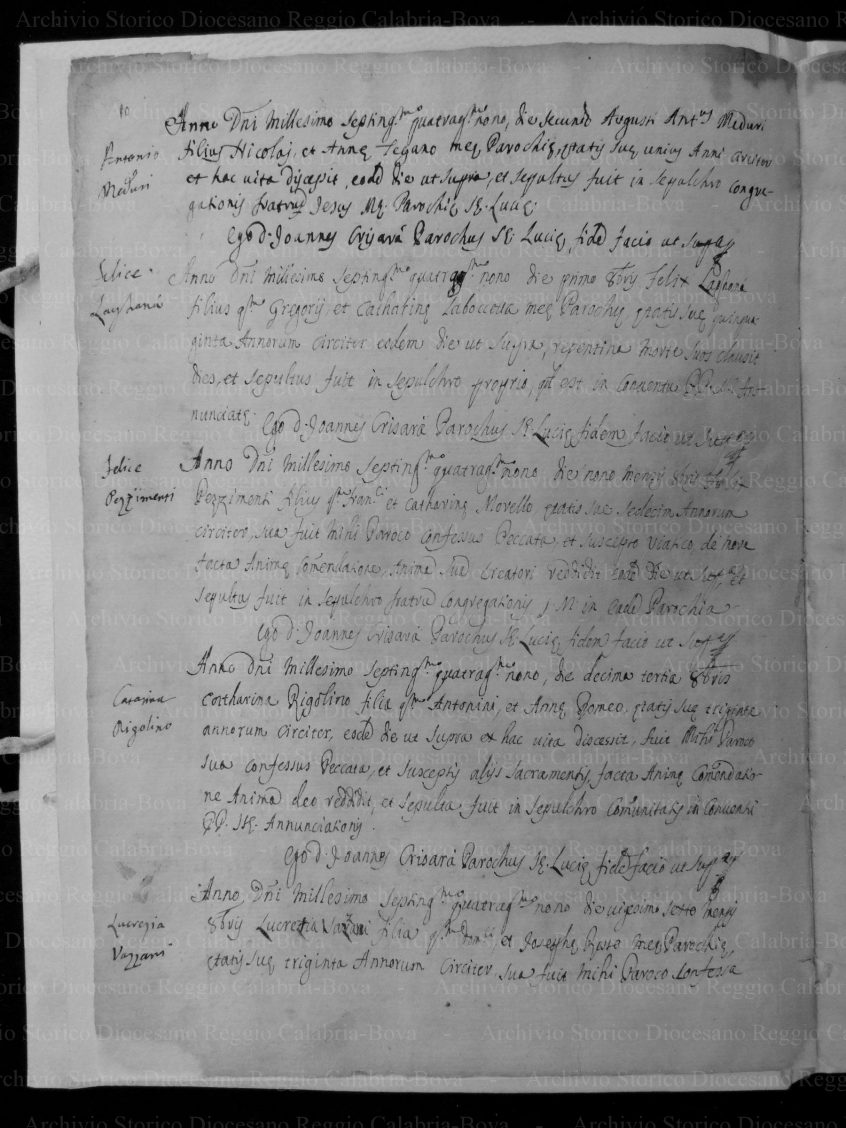 10
Antonio
Meduri
Anno Dni Millesimo septing.mo quatrag.mo nono, die secundo Augusti Ant.us Meduri
filius Nicolaj, et Annę Segano meę Parochię, ętatis suę unius Anni circiter
et hac uita discessit, eod die ut supra, et sepultus fuit in sepulchro congre-
gationis fratrũ Jesus Mę. Parochię Sę. Lucię.
Ego d. Joannes Crisarà Parochus Sę. Lucię, fidẽ facio ut supra
Felice
Laghanà
Anno Dni Millesimo septing.mo quatrag.mo nono die primo 8bris Felix Laghanà
filius q.m Gregorij, et Catharinę Laboccetta meę Parochię, ętatis suę quinqua-
ginta Annorum circiter eodem die ut supra, repentina morte suos clausit
dies, et sepultus fuit in sepulchro proprio, qd est in Conuentu PP. SS. An-
nunciatę.
Ego d. Joannes Crisarà Parochus Sę. Lucię fidem facio ut supra
Felice
Pezzimenti
Anno Dni Millesimo septing.mo quatrag.mo nono die nono mensis 8bris Felix
Pezzimenti filius q.m Fran.ci et Catharinę Morello, ętatis suę sedecim Annorum
circiter, sua fuit mihi Paroco confessus Peccata, et suscepto Uiatico, de more
facta Animę comendatione, Animã suã Creatori reddidit eod die ut sup.a, et
sepultus fuit in sepulchro fratrũ Congregationis J. M. in eadẽ Parochia
Ego d. Joannes Crisarà Parochus Sę. Lucię fidem facio ut sup.a
Catarina
Rigolino
Anno Dni Millesimo septing.mo quatrag.mo nono, die decima tertia 8bris
Catharina Rigolino filia q.m Antonini, et Annę Romeo, ętatis suę triginta
annorum circiter, eodẽ die ut supra ex hac uita discessit, fuit mihi Paroco
sua confessus Peccata, et susceptis alijs sacramentis, facta Animę Comendatio-
ne Animã deo reddidit, et sepulta fuit in sepulchro Comunitatis in Conuentu
PP. SSę. Annunciationis.
Ego d. Joannes Crisarà Parochus Sę. Lucię fidẽ facio ut supra
Lucrezia
Vazzani
Anno Dni Millesimo septing.mo quatrag.mo nono die uigesimo sexto mensis
8bris Lucretia Vazzani filia q.m et Josephę Russo meę Parochię,
ętatis suę triginta Annorum circiter sua fuit mihi Paroco confessa
Archivio Storico Diocesano Reggio Calabria-Bova